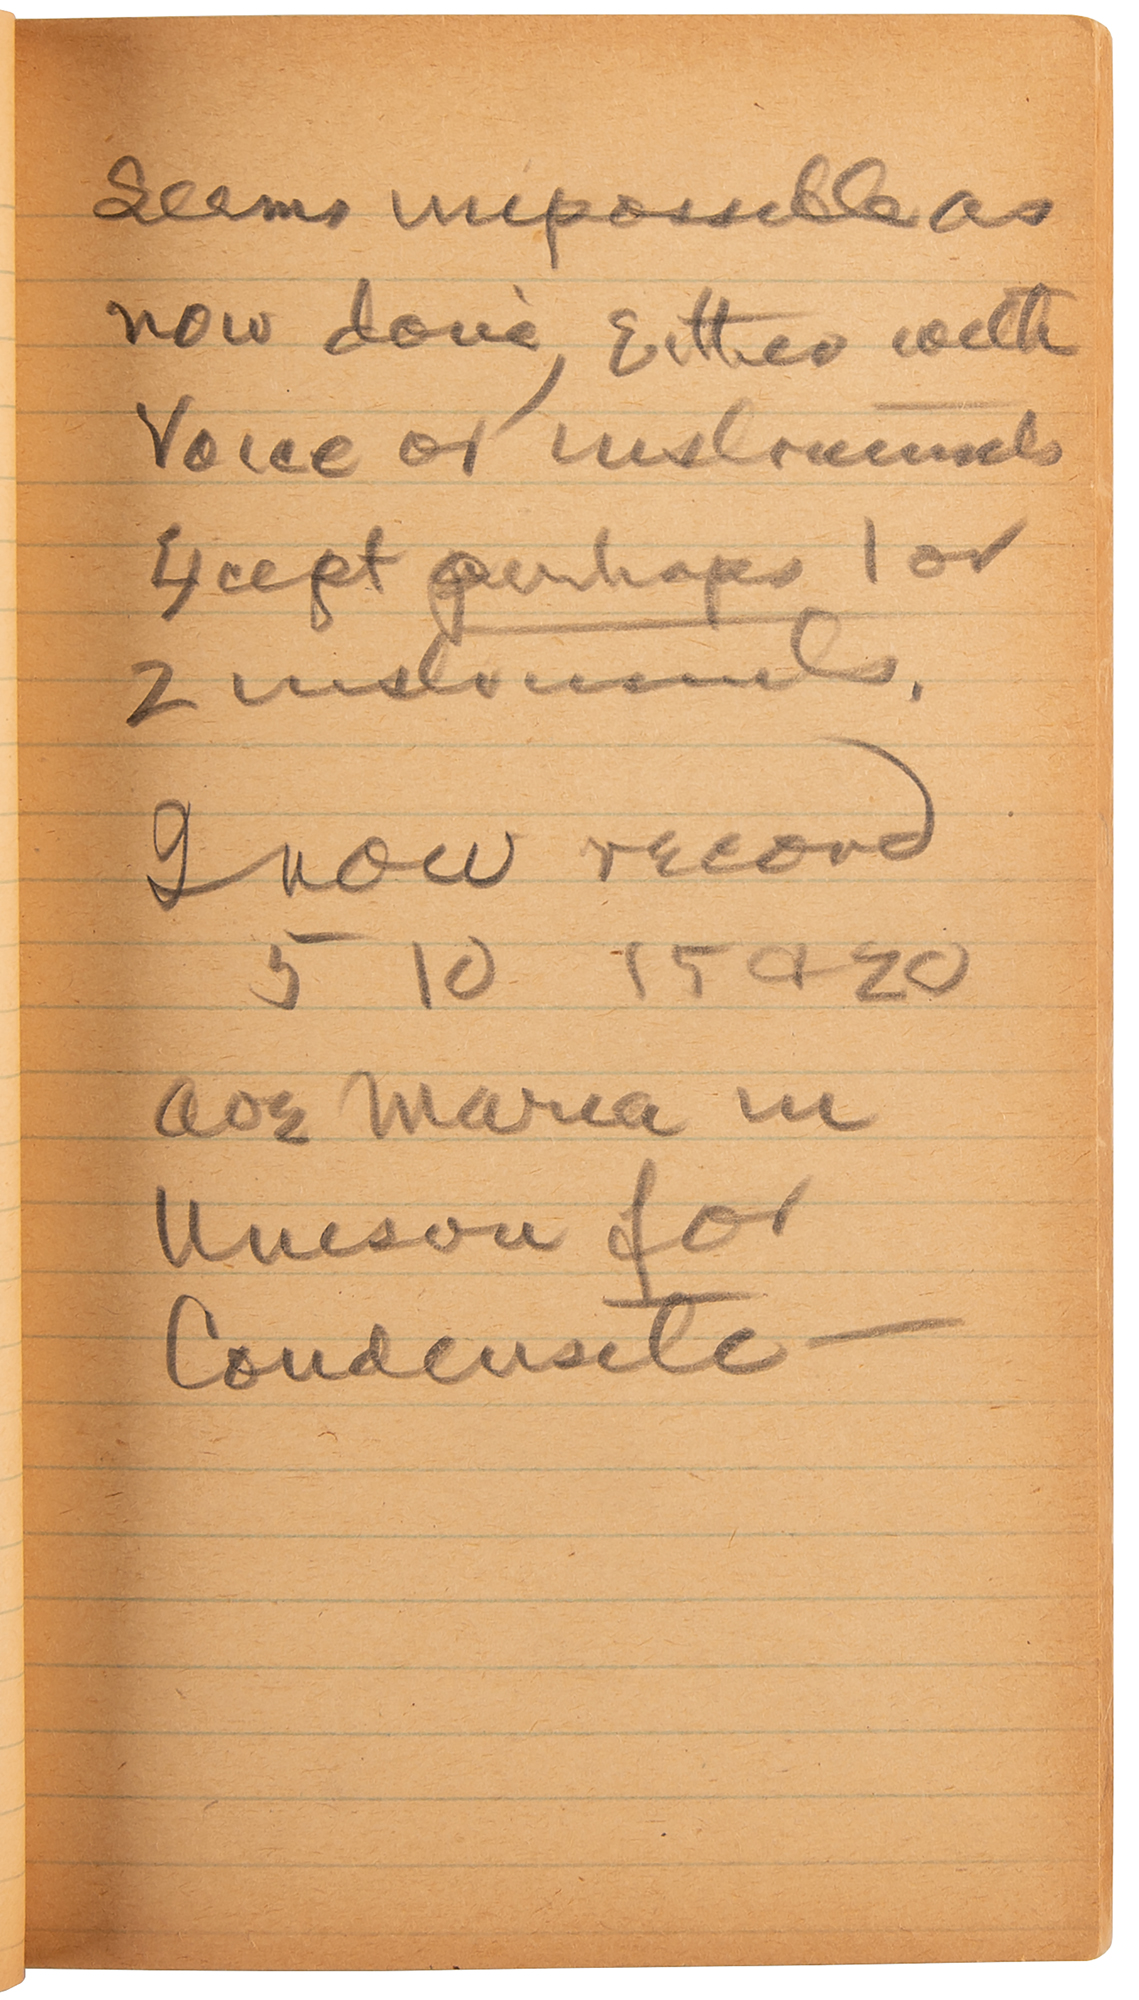 Seems impossible as
now done, Either with
Voice or instruments
Except perhaps 1 or
2 instruments.
I now record
5 10 15 & 20
ave Maria in
Unison for
Condensite —